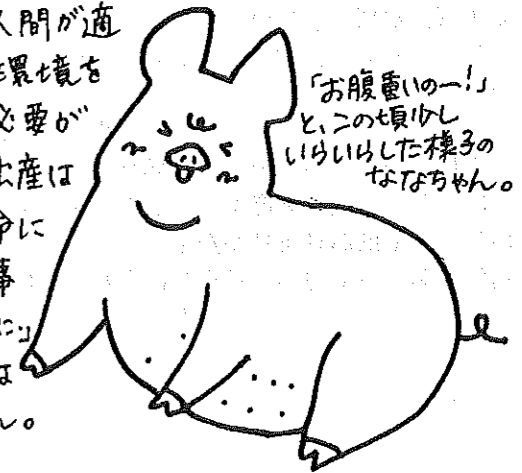 人間が適
環境を
必要が
出産は
命に
事
に」
は
ん。
「お腹重いのー!」
と、この頃少し
いらいらした様子の
ななちゃん。